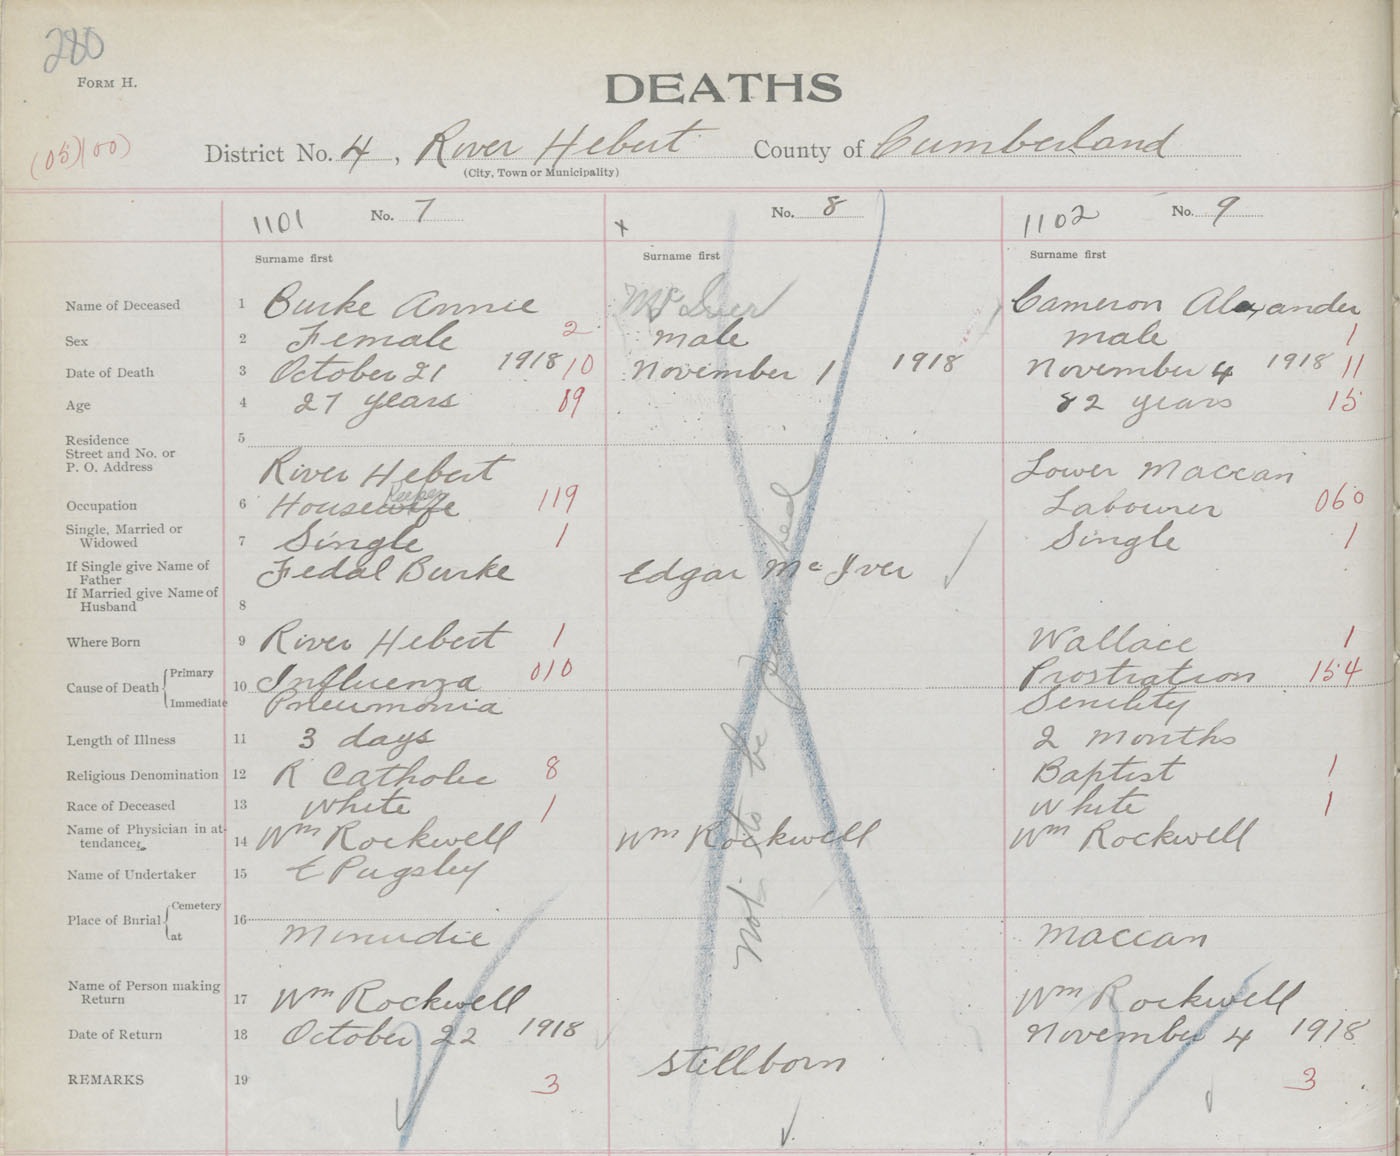 280
FORM H.
DEATHS
(05)(00)
District No. 4, River Hebert County of Cumberland
(City, Town or Municipality)
1101 No. 7 x No. 8 1102 No. 9
Surname first Surname first Surname first
Name of Deceased 1 Burke Annie McIver Cameron Alexander
Sex 2 Female 2 male male 1
Date of Death 3 October 21 1918 10 November 1 1918 November 4 1918 11
Age 4 27 years 09 82 years 15
Residence 5
Street and No. or
P. O. Address River Hebert Lower Maccan
Occupation 6 Housewife Keeper 119 Labourer 060
Single, Married or
Widowed 7 Single 1 Single 1
If Single give Name of
Father Fedal Burke Edgar McIver
If Married give Name of
Husband 8
Where Born 9 River Hebert 1 Wallace 1
Cause of Death Primary 10 Influenza 010 Prostration 154
Immediate Pneumonia Senility
Length of Illness 11 3 days 2 months
Religious Denomination 12 R Catholic 8 Baptist 1
Race of Deceased 13 White 1 White 1
Name of Physician in at-
tendance 14 Wm Rockwell Wm Rockwell Wm Rockwell
Name of Undertaker 15 E Pugsley
Place of Burial Cemetery 16
at Minudie Maccan
Name of Person making
Return 17 Wm Rockwell Wm Rockwell
Date of Return 18 October 22 1918 November 4 1918
REMARKS 19 3 Stillborn 3
not to be